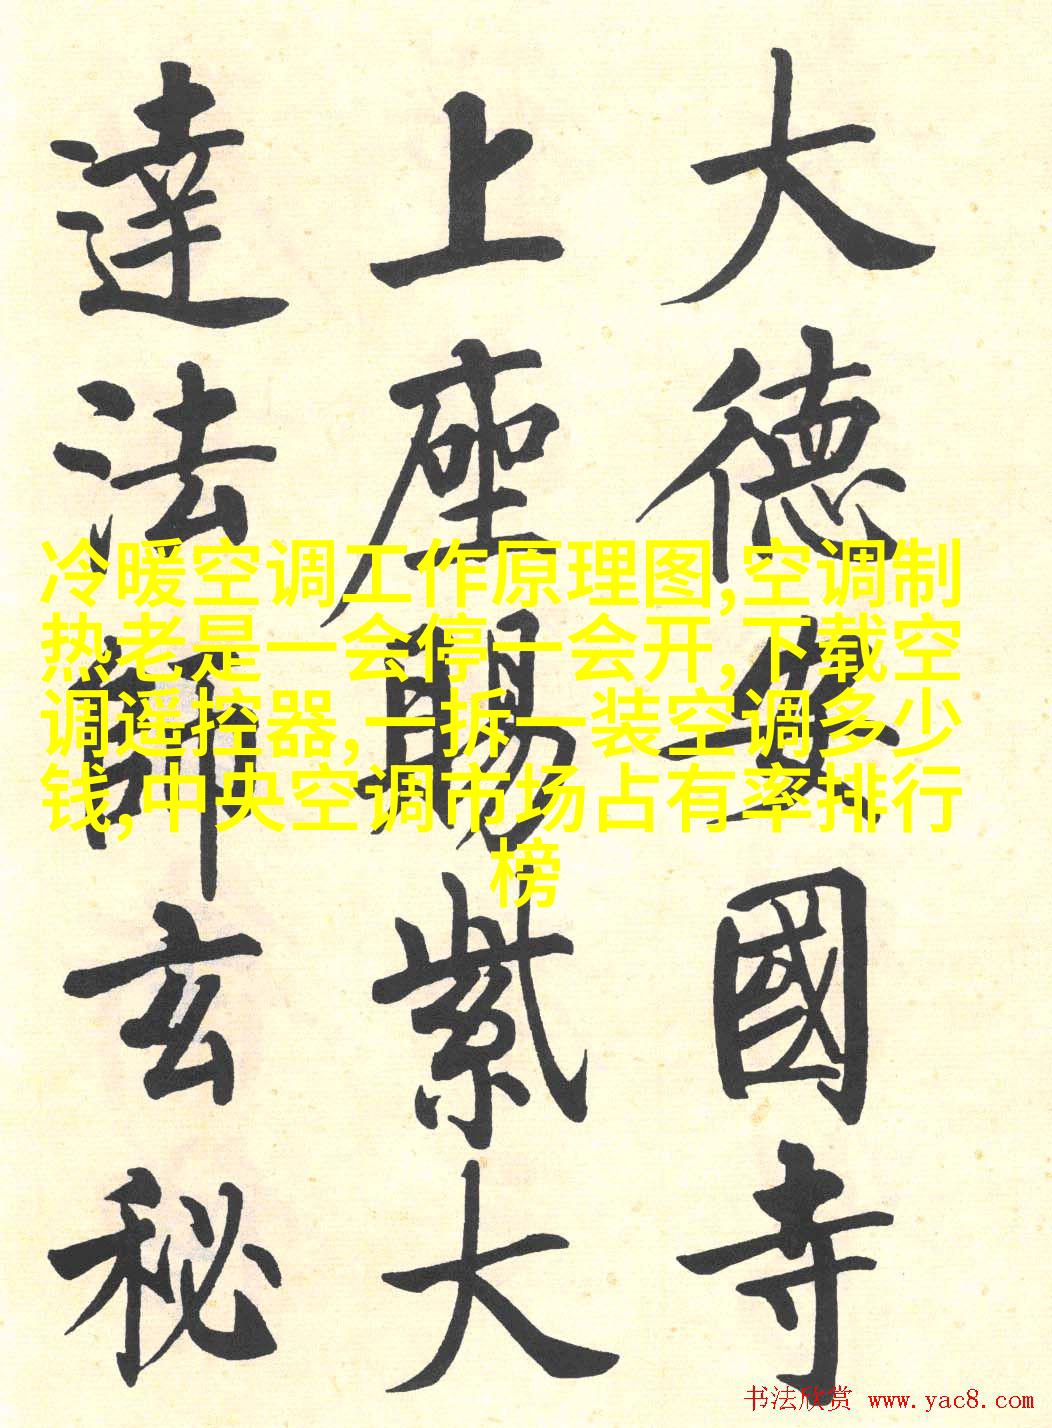 大德安國寺
上座賜紫大
達法師玄秘
冷暖空调工作原理图,空调制
热老是一会停一会开,下载空
调遥控器,一拆一装空调多少
钱,中央空调市场占有率排行
榜
书法欣赏 www.yac8.com